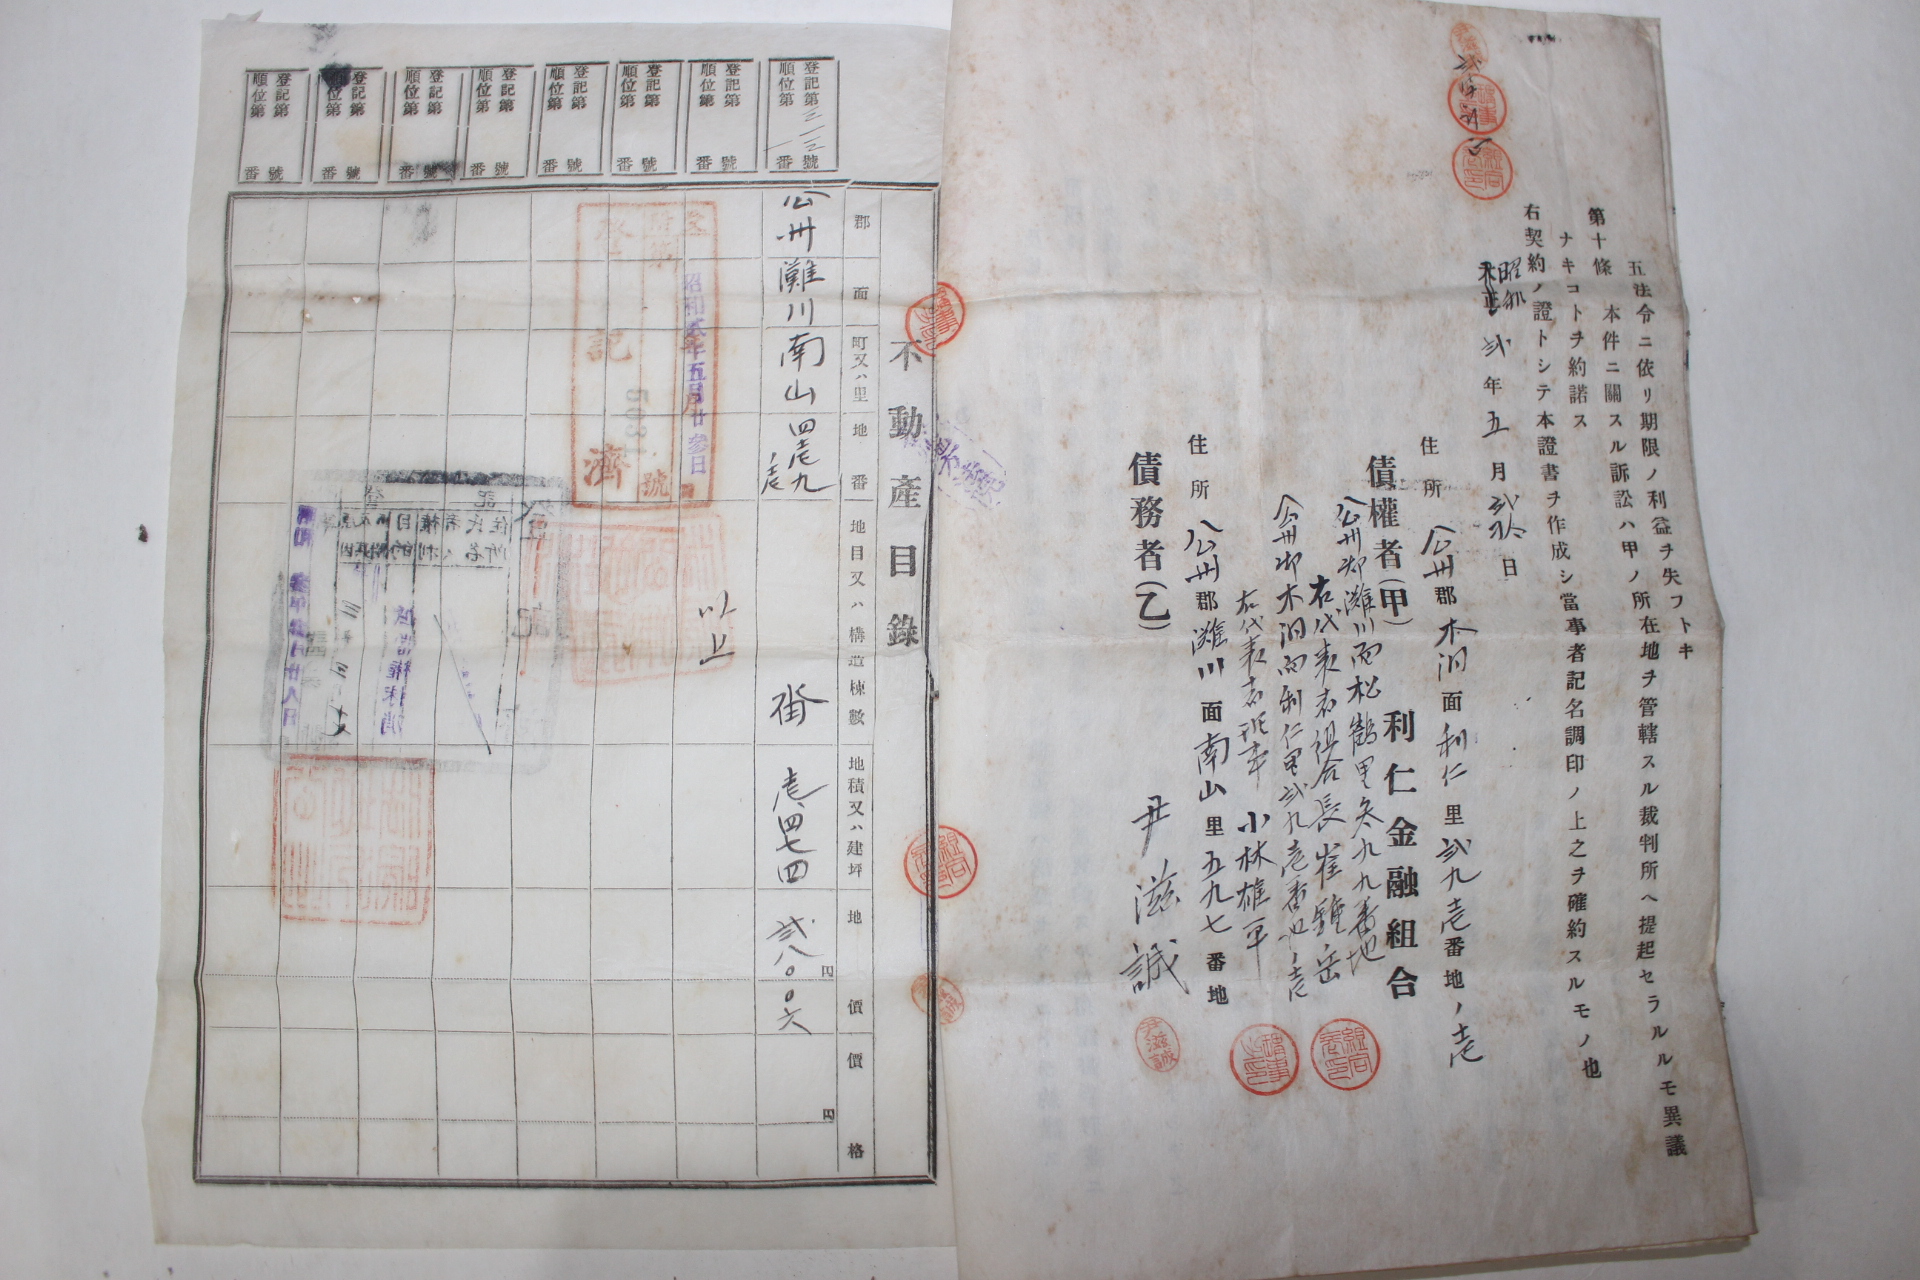 五法令ニ依リ期限ノ利益ヲ失フトキ
第十條　本件ニ關スル訴訟ハ甲ノ所在地ヲ管轄スル裁判所ヘ提起セラルルモ異議
ナキコトヲ約諾ス
右契約ノ證トシテ本證書ヲ作成シ當事者記名調印ノ上之ヲ確約スルモノ也
昭和
大正
弐年五月弐拾日
住所　公州郡木洞面利仁里弐九壱番地ノ壱
債權者(甲)　利仁金融組合
公州郡灘川面松鶴里参九九番地
右代表者組合長崔鍾岳
公州郡木洞面利仁里弐九壱番地ノ壱
右代表者理事小林雄平
住所　公州郡灘川面南山里五九七番地
債務者(乙)　尹滋誠
尹滋誠
不動產目錄
郡　面　町又ハ里　地番　地目又ハ構造棟數　地積又ハ建坪　地價　價格
円　円
公州　灘川　南山　四壱九ノ壱　畓　壱、四七四　弐八〇〇六
以上
登記第三一一三號
順位第一番
登記第　號
順位第　番
登記第　號
順位第　番
登記第　號
順位第　番
登記第　號
順位第　番
登記第　號
順位第　番
登記第　號
順位第　番
登記第　號
順位第　番
昭和貳年五月廿參日
號
登記濟